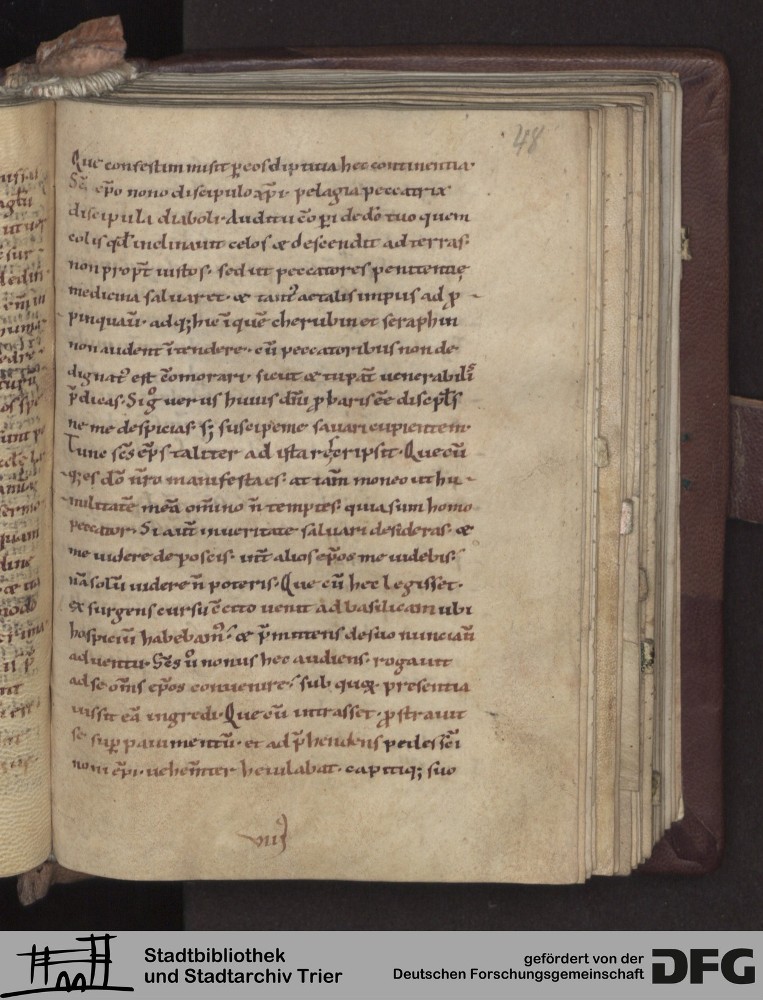 48
Que confestim misit p eos diptitia hec continentia·
Sc̄o ep̄o nono discipulo xp̄i· pelagia peccatrix
discipula diaboli· Audiui c̄operi de dō tuo quem
colis qd̓ inclinauit celos & descendit ad terras·
non propt̄ iustos· sed ut peccatores penitentię
medicina saluaret· &
pinquau· adq; hic īquē cherubin et seraphin
non audent ītendere· cū peccatoribus non de
dignat᷒ est c̄omorari· sicut & tu pat̄ uenerabilis
p̄dicas· Si g̊ uerus huius dn̄i probaris ēē
ne me despicias· s; suscipe me saluari cupientem·
Tunc sc̄s ep̄s taliter ad ista rescripsit· Que cū
q; es dō nr̄o manifesta es· at tam̄ moneo ut hu-
militatē meā om̄ino n̄ temptes· quia sum homo
peccator· Si aut̄ in ueritate saluari desideras· &
me uidere deposcis· int̄ alios ep̄os me uidebis·
nā solū uidere n̄ poteris· Que cū hec legisset·
exsurgens cursu c̄ito uenit ad basilicam ubi
hospiciū habebam᷒· & p̄mittens de suo nunciaū
aduentu· Sc̄s ū nonus hec audiens· rogauit
ad se om̄s ep̄os conuenire· sub quoꝝ presentia
iussit eā ingredi· Que cū intrasset· prostrauit
se sup pauimentū· et adp̄hendens pedes sc̄i
noni ep̄i· uehem̄ter heiulabat· capitiq; suo
VIII
Stadtbibliothek
und Stadtarchiv Trier
gefördert von der
Deutschen Forschungsgemeinschaft
DFG